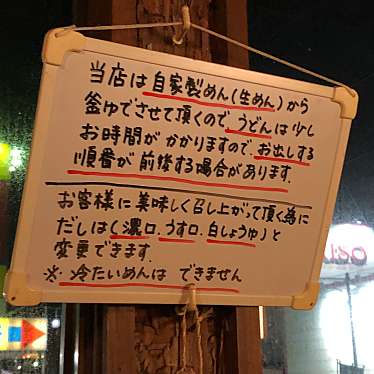 当店は自家製めん(生めん)から
釜ゆでさせて頂くので、うどんは少し
お時間がかかりますので、お出しする
順番が前後する場合があります.
お客様に美味しく召し上がって頂く為に
だしは(濃口.うす口.白しょうゆ)と
変更できます.
※冷たいめんは できません